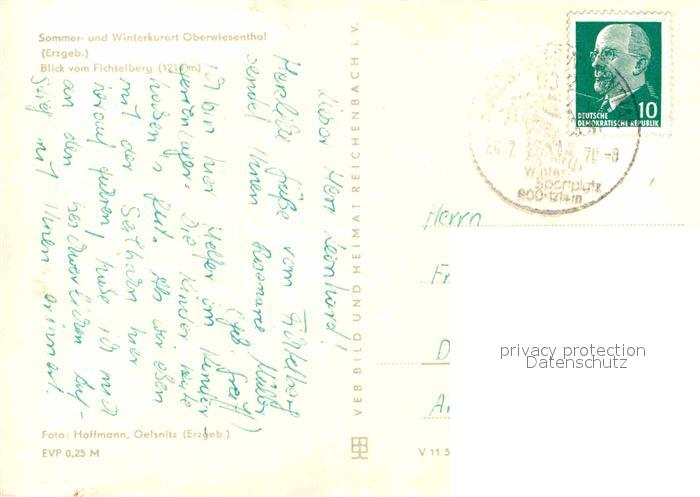 Sommer- und Winterkurort Oberwiesenthal
(Erzgeb.)
Blick vom Fichtelberg (1214 m)
Lieber Herr Leonhard!
Herzliche Grüße vom Fichtelberg
sendet Ihnen Rosmarie Müller
(geb. Greif)
Ich bin hier Helfer im Kinder-
ferienlager. Die Kinder heute
haben 's gut. Als wir eben
mit der Seilbahn hier
herauf fuhren, habe ich mich
an den beschwerlichen Auf-
stieg mit Ihnen erinnert.
Foto: Hoffmann, Oelsnitz (Erzgeb.)
EVP 0,25 M
VEB BILD UND HEIMAT REICHENBACH I. V.
V 11 5
DEUTSCHE
DEMOKRATISCHE REPUBLIK
10
70 -8
Winter
Sportplatz
Herrn
Fr
D
A
privacy protection
Datenschutz